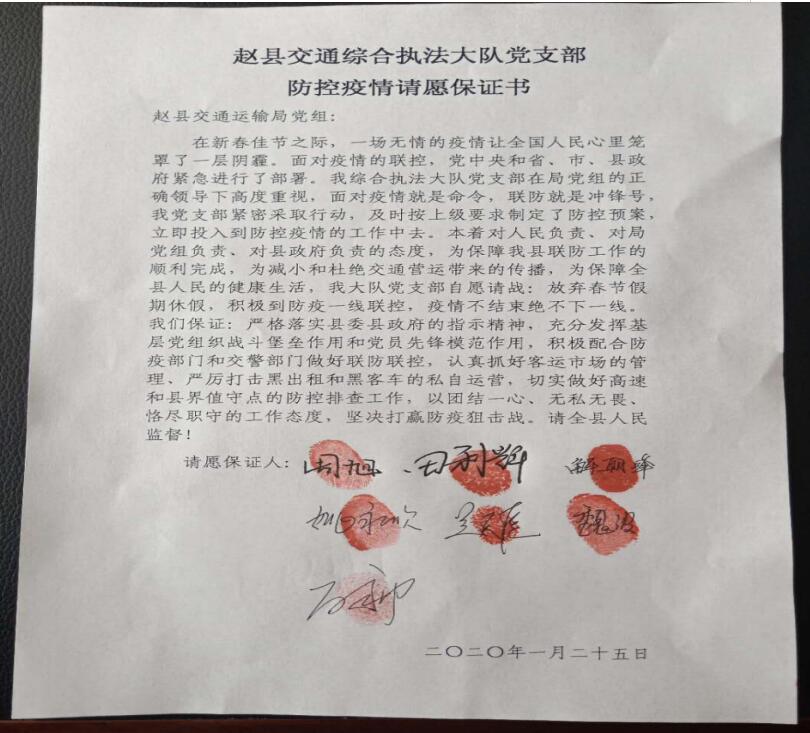 赵县交通综合执法大队党支部
防控疫情请愿保证书
赵县交通运输局党组：
在新春佳节之际，一场无情的疫情让全国人民心里笼
罩了一层阴霾。面对疫情的联控，党中央和省、市、县政
府紧急进行了部署。我综合执法大队党支部在局党组的正
确领导下高度重视，面对疫情就是命令，联防就是冲锋号，
我党支部紧密采取行动，及时按上级要求制定了防控预案，
立即投入到防控疫情的工作中去。本着对人民负责、对局
党组负责、对县政府负责的态度，为保障我县联防工作的
顺利完成，为减小和杜绝交通营运带来的传播，为保障全
县人民的健康生活，我大队党支部自愿请战：放弃春节假
期休假，积极到防疫一线联控，疫情不结束绝不下一线。
我们保证：严格落实县委县政府的指示精神，充分发挥基
层党组织战斗堡垒作用和党员先锋模范作用，积极配合防
疫部门和交警部门做好联防联控，认真抓好客运市场的管
理、严厉打击黑出租和黑客车的私自运营，切实做好高速
和县界值守点的防控排查工作，以团结一心、无私无畏、
恪尽职守的工作态度，坚决打赢防疫狙击战。请全县人民
监督！
请愿保证人：周旭、田利辉
二〇二〇年一月二十五日